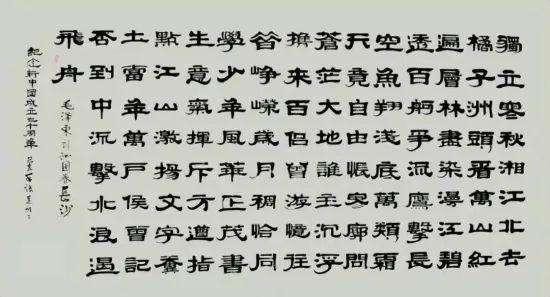 獨立寒秋湘江北去
橘子洲頭看萬山紅
遍層林盡染漫江碧
透百舸爭流鷹擊長
空魚翔淺底萬類霜
天竟自由悵寥廓問
蒼茫大地誰主沉浮
攜來百侶曾游憶往
昔崢嶸歲月稠恰同
學少年風華正茂書
生意氣揮斥方遒指
點江山激揚文字糞
土當年萬戶侯曾記
否到中流擊水浪遏
飛舟
毛澤東詞沁園春長沙
紀念新中国成立六十周年